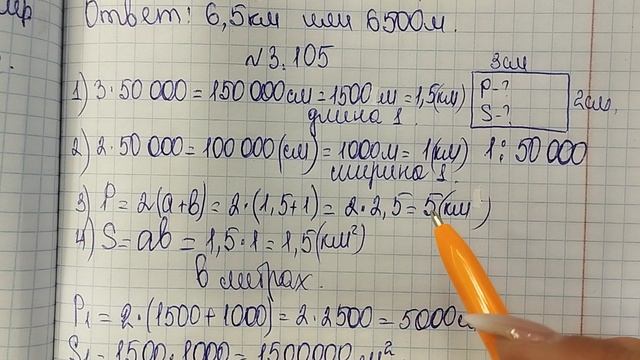 Ответ: 6,5км или 6500м.
№3.105
3см
1) 3·50 000 = 150 000см = 1500 м = 1,5(км)
P-?
S-?
2см.
длина 1
2) 2·50 000 = 100 000(см) = 1000м = 1(км) 1:50 000
ширина 1
3) P = 2(a+b) = 2·(1,5+1) = 2·2,5 = 5(км)
4) S = ab = 1,5·1 = 1,5(км²)
в метрах.
P₁ = 2·(1500 + 1000) = 2·2500 = 5000
S₁ = 1500·1000 = 1500000 м²